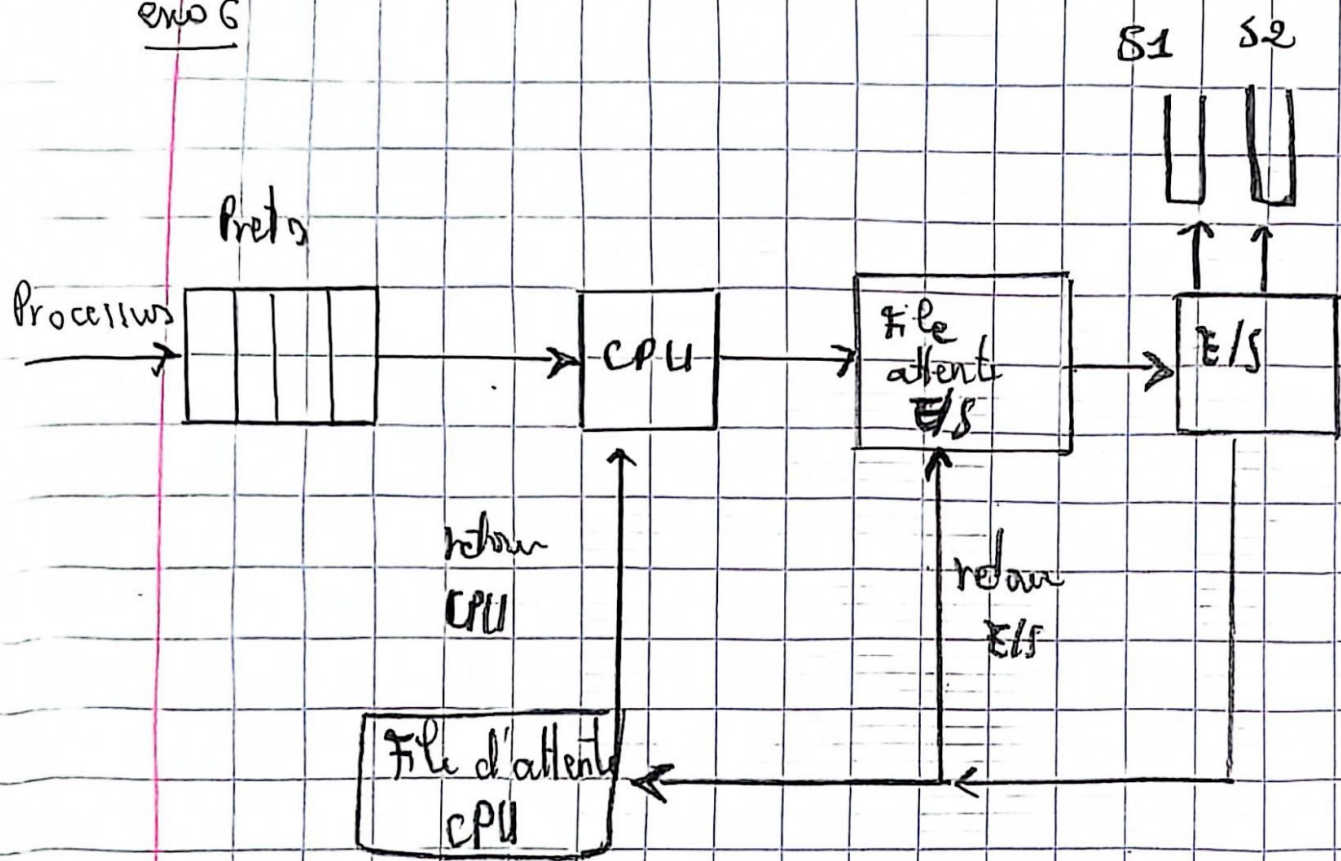 exo 6
S1
S2
Prets
Processus
CPU
File
attente
E/S
E/S
retour
CPU
retour
E/S
File d'attente
CPU